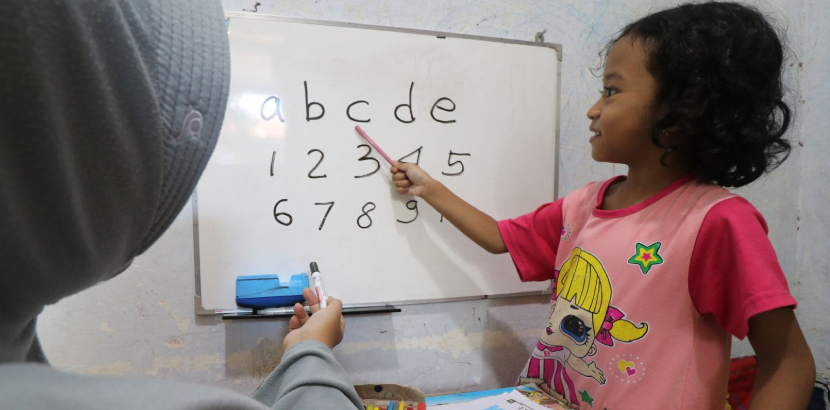 a b c d e
1 2 3 4 5
6 7 8 9